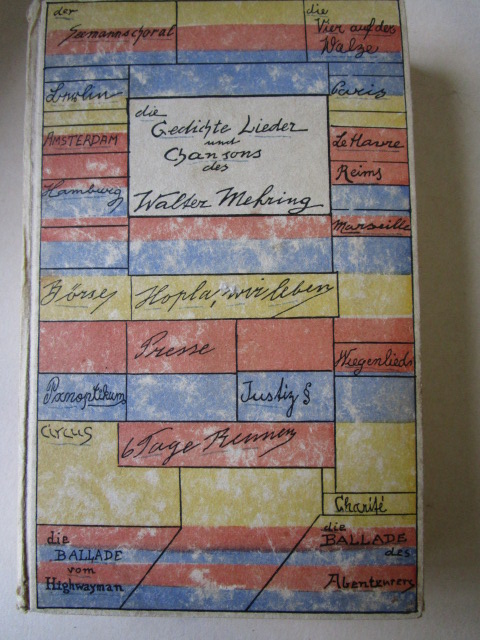 der
Seemannschoral
die
Vier auf der
Walze
Berlin
Paris
AMSTERDAM
Le Havre
Hamburg
Reims
Marseille
die
Gedichte Lieder
und
Chansons
des
Walter Mehring
Börse
Hopla, wir leben
Presse
Wiegenlied
Panoptikum
Justiz §
Circus
6 Tage Rennen
Charité
die
BALLADE
vom
Highwayman
die
BALLADE
des
Abenteurers